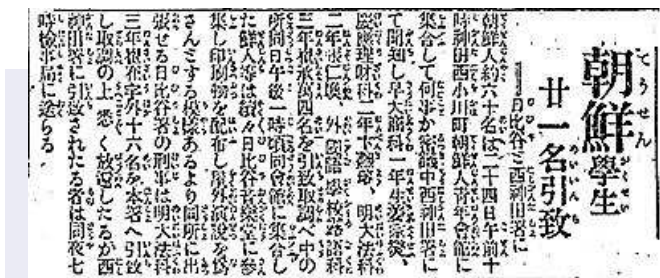 朝鮮學生
てうせん がくせい
廿一名引致
日比谷と西神田署に
朝鮮人約六十名は二十四日午前十
時神田西小川町朝鮮人青年會館に
集合して何事か密議中西神田署に
て聞知し早大商科一年生
慶應理財科二年、明大法科
二年、外國語學校露語科
三年四名を引致取調べ中の
所同日午後一時頃同會館に集合し
た鮮人等は續々日比谷音樂堂に參
集し印刷物を配布し屋外演說を爲
さんとする模樣あるより同所に出
張せる日比谷署の刑事は明大法科
三年外十六名を本署へ引致
し取調の上悉く放還したるが西
神田署に引致されたる者は同夜七
時檢事局に送らる